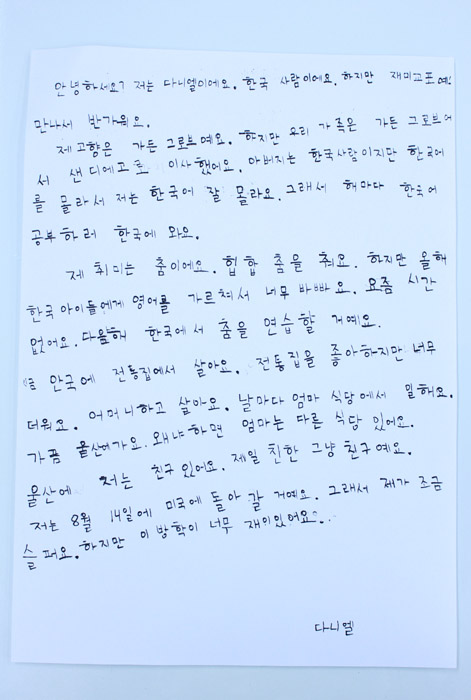 안녕하세요? 저는 다니엘이에요. 한국 사람이에요. 하지만 재미교포예요
만나서 반가워요.
제 고향은 가든 그로브예요. 하지만 우리 가족은 가든 그로브에
서 샌디에고로 이사했어요. 아버지는 한국사람이지만 한국어
를 몰라서 저는 한국어 잘 몰라요. 그래서 해마다 한국어
공부하러 한국에 와요.
제 취미는 춤이에요. 힙합 춤을 춰요. 하지만 올해
한국 아이들에게 영어를 가르쳐서 너무 바빠요. 요즘 시간
없어요. 다음해 한국에서 춤을 연습할 거예요.
안국에 전통집에서 살아요. 전통집을 좋아하지만 너무
더워요. 어머니하고 살아요. 날마다 엄마 식당에서 일해요.
가끔 울산에가요. 왜냐하면 엄마는 다른 식당 있어요.
울산에 저는 친구 있어요. 제일 친한 그냥 친구예요.
저는 8월 14일에 미국에 돌아 갈 거예요. 그래서 제가 조금
슬퍼요. 하지만 이 방학이 너무 재미있어요..
다니엘